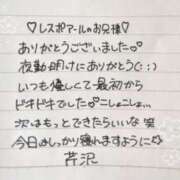 ♡レスポアールのお兄様♡
ありがとうございました♡
夜勤明けにありがとう(: :)
いつも優しくて最初から
ドキドキでした♡こしょこしょ…
次はもっとできたらいいな 笑
今日めしっかり寝れますように♡
芹沢